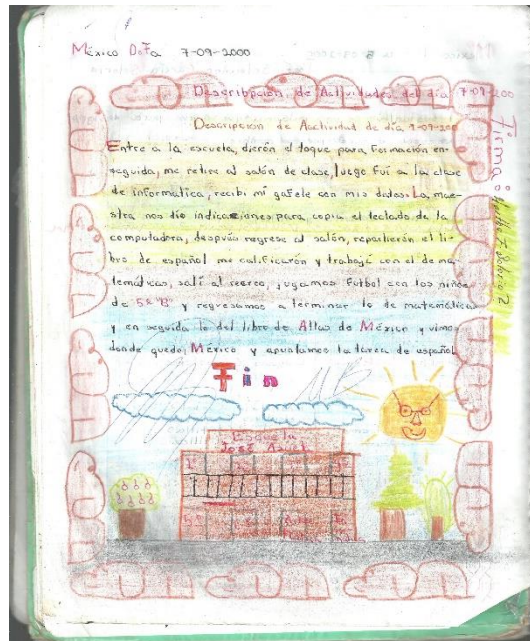 México D.F. a 7-09-2000
Describpción de Actividades del día 7-09-200
Descripción de Aactividad de día 7-09-200
Entre a la escuela, dierón el toque para formación en-
seguida, me retire al salón de clase, luego fui a la clase
de informatica, recibi mí gafete con mis datos. La mae-
stra nos dío indicaciones para copia el teclado de la
computadora, después regrese al salón, repartierón el li-
bro de español me calificarón y trabajé con el de ma-
temáticas, salí al recreo, jugamos futbol con los niños
de 5º "B" y regresamos a terminar lo de matemáticas
y en seguida lo del libro de Atlas de México y vimos
donde quedo México y apuntamos la tarea de español
Fin
Escuela
José
Firma: